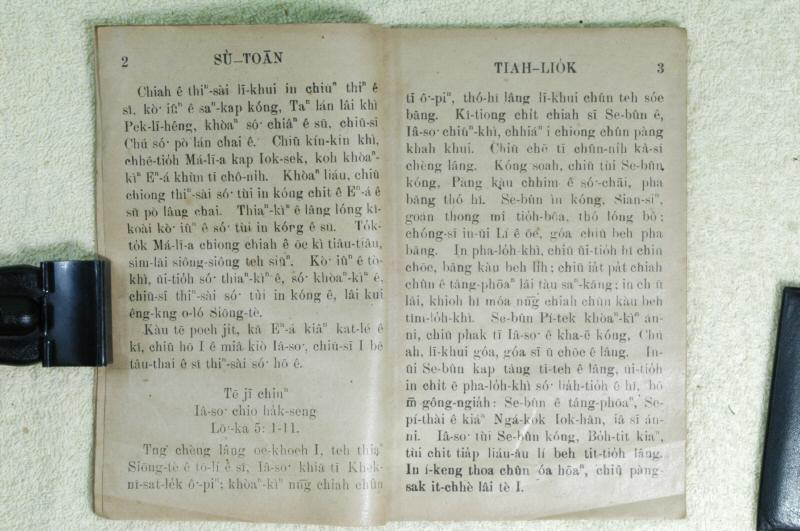 2
SÙ-TOĀN
Chiah ê thiⁿ-sài lī-khui in chiūⁿ thiⁿ ê
sî, kò͘ iûⁿ ê saⁿ-kap kóng, Taⁿ lán lâi khì
Pek-lī-hêng, khòaⁿ só͘ chiâⁿ ê sū, chiū-sī
Chú só͘ pò lán chai ê. Chiū kín-kín khì,
chhē-tio̍h Má-lī-a kap Iok-sek, koh khòaⁿ-
kìⁿ Eⁿ-á khùn tī chô-nih. Khòaⁿ liáu, chiū
chiong thiⁿ-sài só͘ tùi in kóng chit ê Eⁿ-á ê
sū pò lâng chai. Thiaⁿ-kìⁿ ê lâng lóng kî-
koài kò͘ iûⁿ ê só͘ tùi in kóng ê sū. To̍k-
to̍k Má-lī-a chiong chiah ê ōe kì tiâu-tiâu,
sim-lāi siông-siông teh siūⁿ. Kò͘ iûⁿ ê tò-
khì, ūi-tio̍h só͘ thiaⁿ-kìⁿ ê, só͘ khòaⁿ-kìⁿ ê,
chiū-sī thiⁿ-sài só͘ tùi in kóng ê, lâi kui
êng-kng o-ló Siōng-tè.
Kàu tē poeh ji̍t, kā Eⁿ-á kiâⁿ kat-lé ê
kî, chiū hō I ê miâ kiò Iâ-so͘, chiū-sī I bē
tâu-thai ê sî thiⁿ-sài só͘ hō ê.
Tē jī chiuⁿ
Iâ-so͘ chio ha̍k-seng
Lō͘-ka 5: 1-11.
Tng chèng lâng oe-kheh I, teh thiaⁿ
Siōng-tè ê tō-lí ê sî, Iâ-so͘ khiā tī Khek-
nî-sat-le̍k ô͘-piⁿ; khòaⁿ-kìⁿ nn̄g chiah chûn
TIAH-LIO̍K
3
tī ô͘-piⁿ, thó-hî lâng lī-khui chûn teh sóe
bāng. Kî-tiong chit chiah sī Se-bûn ê,
Iâ-so͘ chiūⁿ-khì, chhiáⁿ i chiong chûn pàng
khah khui. Chiū chē tī chûn-ni̍h kà-sī
chèng lâng. Kóng soah, chiū tùi Se-bûn
kóng, Pàng kàu chhim ê só͘-chāi, pha
bāng thó hî. Se-bûn ìn kóng, Sian-siⁿ,
goán thong mî tio̍h-bôa, thó lóng bô;
chóng-sī in-ūi Lí ê ōe, góa chiū beh pha
bāng. In pha-lo̍h-khì, chiū ûi-tio̍h hî chin
chōe, bāng kàu beh li̍h; chiū ia̍t pa̍t chiah
chûn ê tâng-phōaⁿ lâi tàu saⁿ-kāng; in chū
lâi, khioh hî móa nn̄g chiah chûn kàu beh
tîm-lo̍h-khì. Se-bûn Pí-tek khòaⁿ-kìⁿ án-
ni, chiū phak tī Iâ-so͘ ê kha-ē kóng, Chú
ah, lī-khui góa, góa sī ū chōe ê lâng. In-
ūi Se-bûn kap tâng tī-teh ê lâng, ūi-tio̍h
in chit ē pha-lo̍h-khì só͘ lia̍h-tio̍h ê hî, bô
m̄ gông-ngia̍h: Se-bûn ê tâng-phōaⁿ, Se-
pí-thài ê kiáⁿ Ngá-kok Iok-hān, iā sī án-
ni. Iâ-so͘ tùi Se-bûn kóng, Bo̍h-tit kiaⁿ,
tùi chit tia̍p liáu-āu lí beh tit-tio̍h lâng.
In í-keng thoa chûn óa hōaⁿ, chiū pàng-
sak it-chhè lâi tè I.